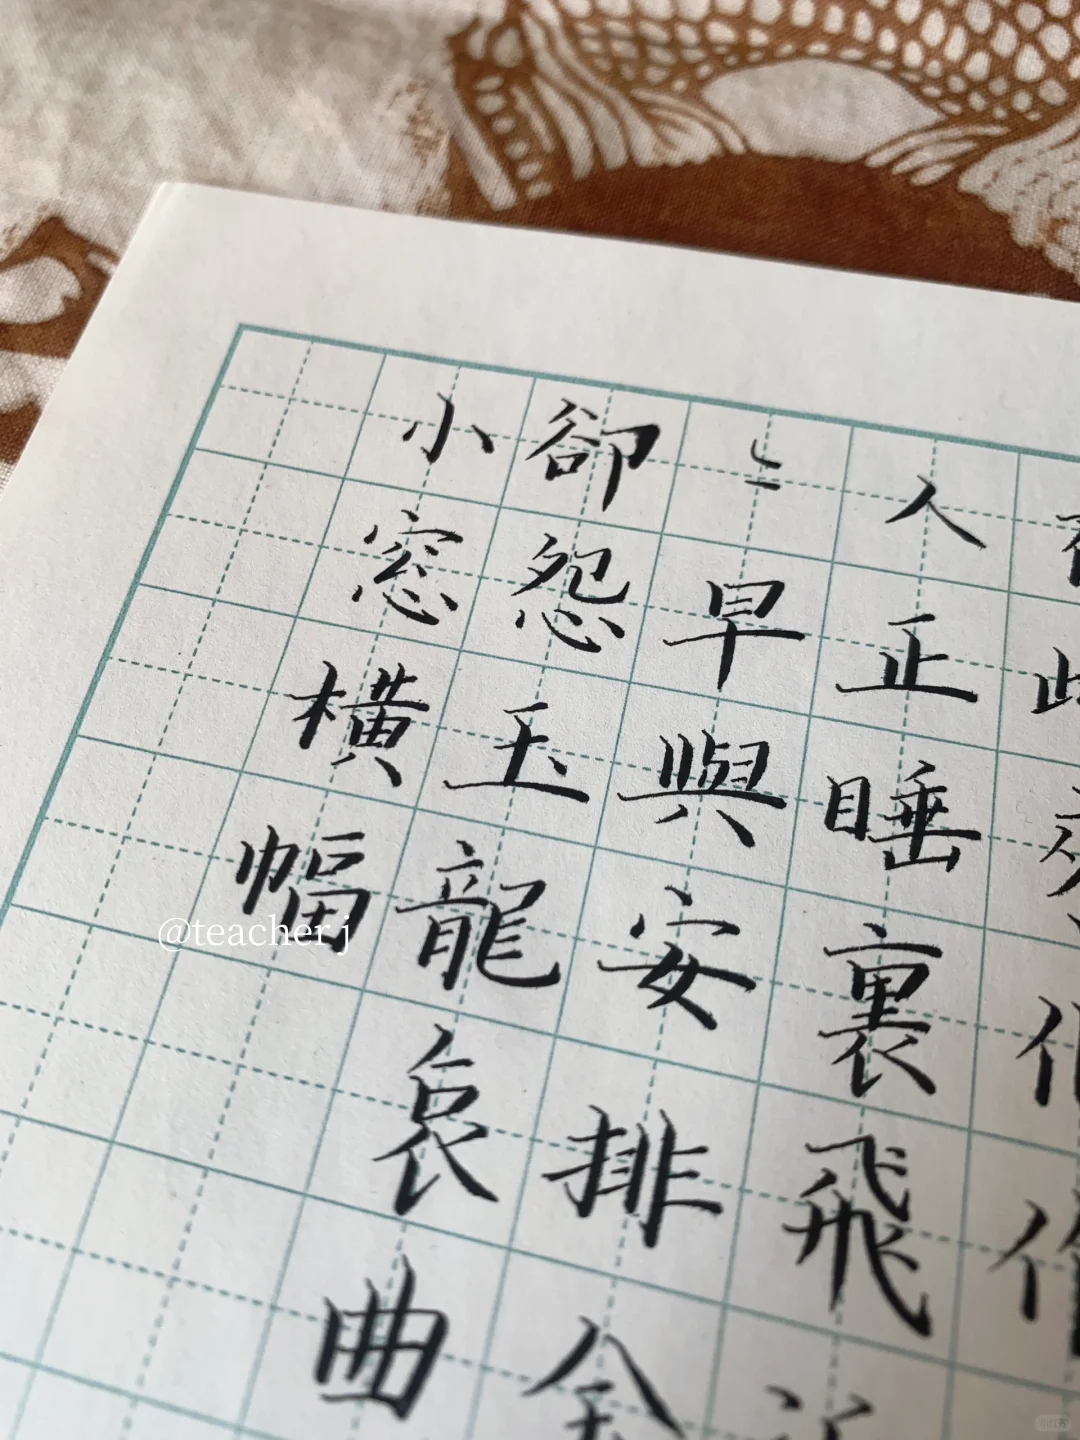 人正睡裏飛
〻早與安排金
卻怨玉龍哀曲
小窓橫幅
@teacher j